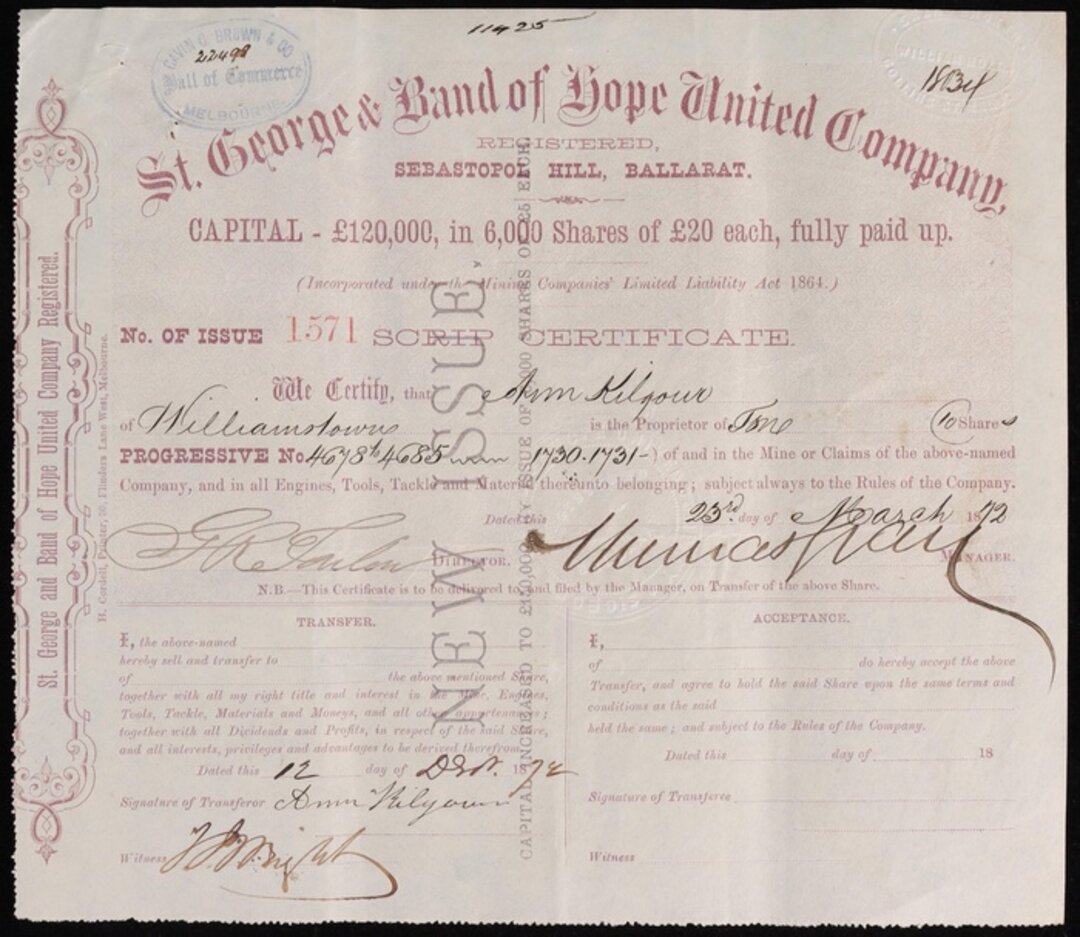 11425
GAVIN G. BROWN & CO
22498
Hall of Commerce
MELBOURNE
1834
St. George & Band of Hope United Company,
REGISTERED,
SEBASTOPOL HILL, BALLARAT.
CAPITAL - £120,000, in 6,000 Shares of £20 each, fully paid up.
(Incorporated under the Mining Companies' Limited Liability Act 1864.)
No. OF ISSUE 1571 SCRIP CERTIFICATE.
We Certify, that Ann Kilgour
of Williamstown is the Proprietor of Ten (10) Shares
PROGRESSIVE No. 4678 to 4685 1730.1731-) of and in the Mine or Claims of the above-named
Company, and in all Engines, Tools, Tackle and Material thereunto belonging; subject always to the Rules of the Company.
Dated this 23rd day of March 1872
DIRECTOR. MANAGER.
N.B.—This Certificate is to be delivered to and filed by the Manager, on Transfer of the above Share.
TRANSFER.
I, the above-named
hereby sell and transfer to
of the above mentioned Share,
together with all my right title and interest in the Mine, Engines,
Tools, Tackle, Materials and Moneys, and all other appurtenances;
together with all Dividends and Profits, in respect of the said Share,
and all interests, privileges and advantages to be derived therefrom.
Dated this 12 day of 1872
Signature of Transferor Ann Kilgour
Witness
ACCEPTANCE.
I,
of do hereby accept the above
Transfer, and agree to hold the said Share upon the same terms and
conditions as the said
held the same; and subject to the Rules of the Company.
Dated this day of 18
Signature of Transferee
Witness
St. George and Band of Hope United Company Registered.
H. Cordell, Printer, Flinders Lane West, Melbourne.
NEW ISSUE,
CAPITAL INCREASED TO BY ISSUE OF SHARES OF £5 EACH.